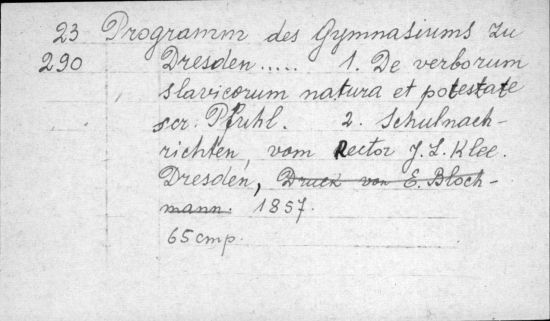 23 Programm des Gymnasiums zu
290 Dresden..... 1. De verborum
slavicorum natura et potestate
scr. Pfuhl. 2. Schulnach-
richten, vom Rector J. L. Klee.
Dresden, Druck von E. Bloch-
mann. 1857.
65 стр.